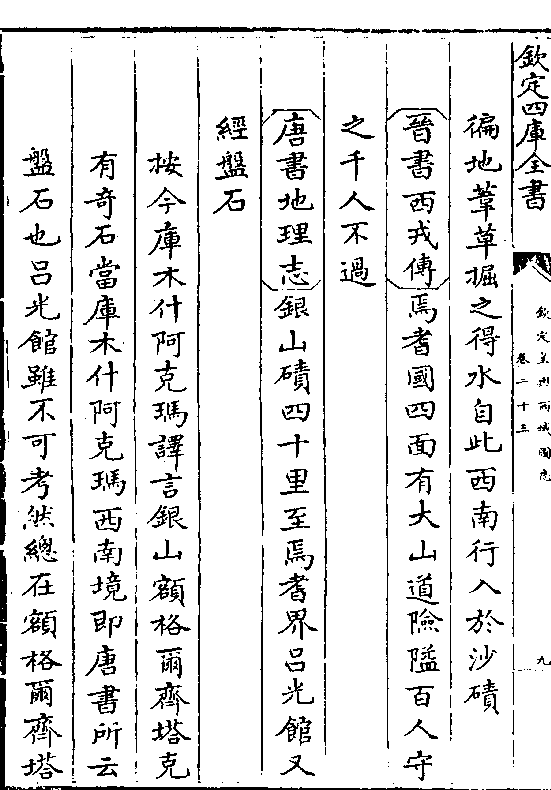 欽定四庫全書
欽定皇輿西域圖志
卷二十三
九
徧地葦草掘之得水自此西南行入於沙磧
晉書西戎傳焉耆國四面有大山道險隘百人守
之千人不過
唐書地理志銀山磧四十里至焉耆界吕光館又
經盤石
按今庫木什阿克瑪譯言銀山額格爾齊塔克
有奇石當庫木什阿克瑪西南境即唐書所云
盤石也吕光館雖不可考然總在額格爾齊塔